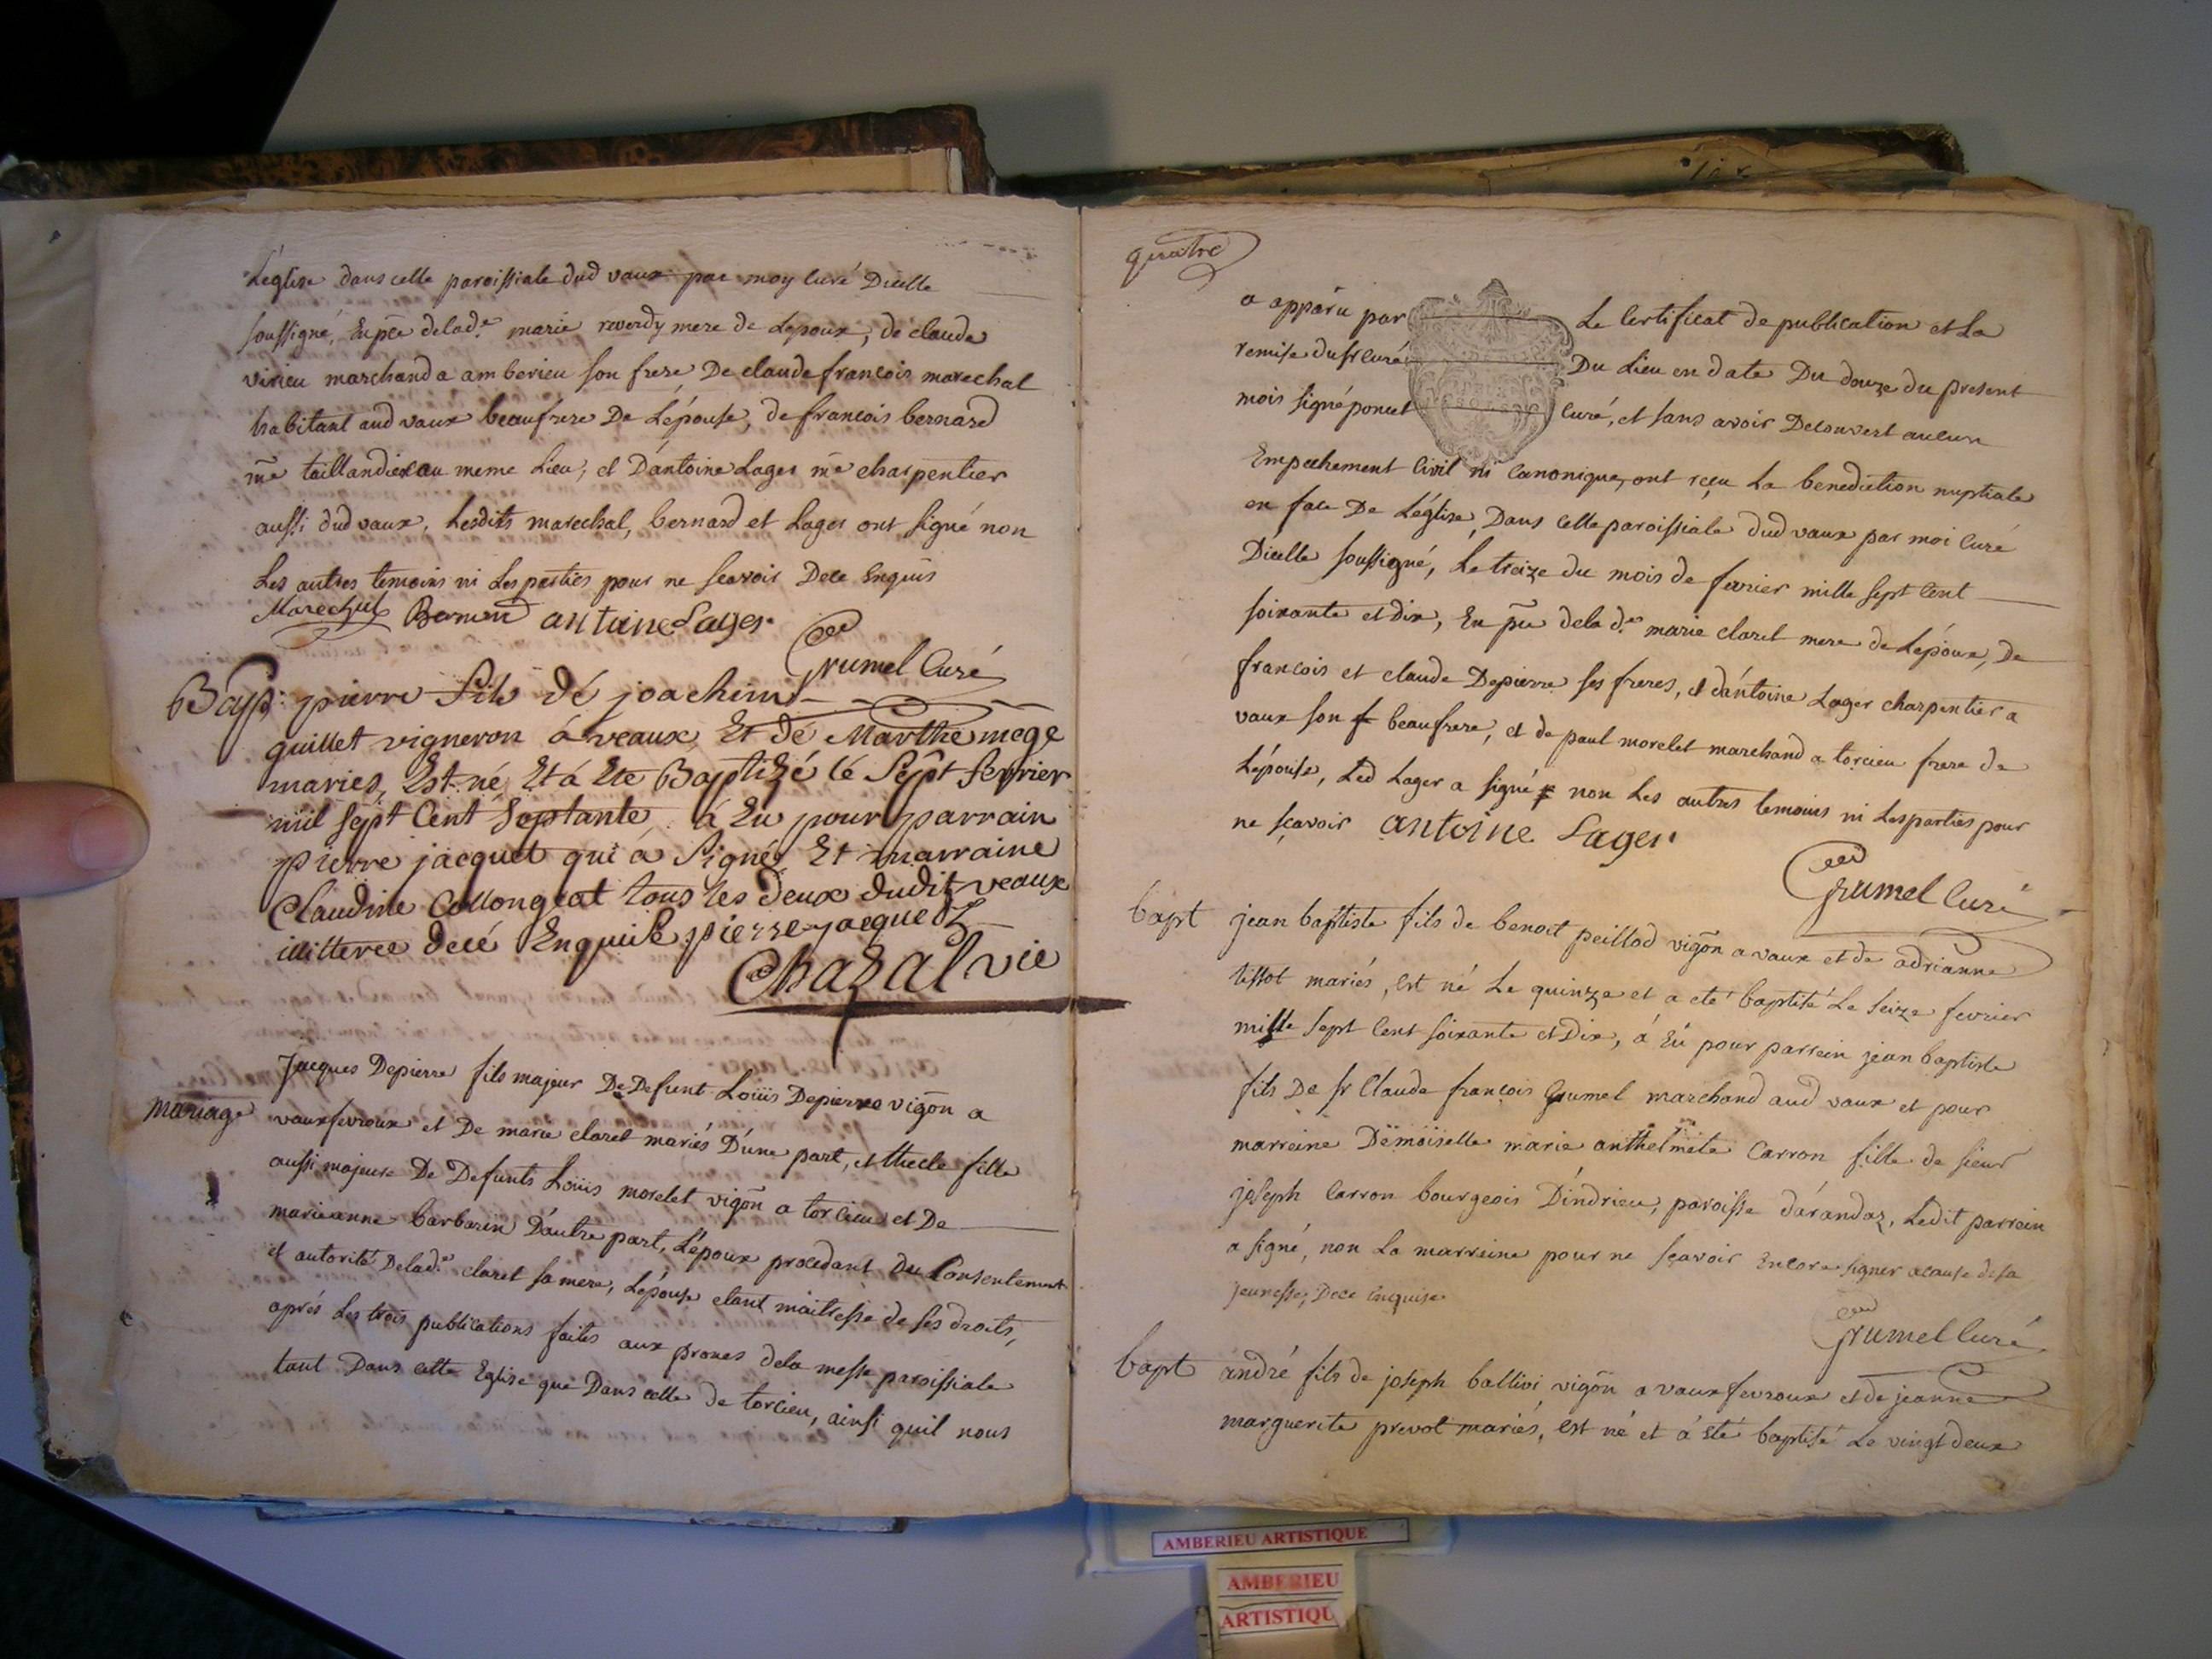 L'église dans celle paroissiale dud vaux par moy curé Dicelle
soussigné, En pce de lad.e marie reverdy mere de Lepoux, de claude
virieu marchand a amberieu son frere De claude francois marechal
habitant aud vaux beaufrere De L'épouse, de francois bernard
me taillandier au meme Lieu, et D'antoine Lager me charpentier
aussi dud vaux, Lesdits marechal, bernard et Lager ont signé non
Les autres temoins ni Les parties pour ne scavoir De ce Enquis
Marechal Bernard antoine Lager
Grumel Curé
Bapt: pierre fils dé joachim
guillet vigneron á veaux, Et dé Marthe mege
mariés, Est né, Et á Eté Baptizé lé Sept fevrier
mil sépt Cent Septante, á Eu pour parrain
pierre jacquet qui a Signé, Et marraine
Claudine Collongeat tous les deux dudit veaux
illitterée decé Enquise pierre jacquet
Chazal vic
Jacques Depierre fils majeur De Defunt Loüis Depierre vigõn a
mariage vauxfevroux et De marie claret mariés D'une part, et thecle fille
aussi majeure De Defunts Loüis morelet vigõn a torcieu et De
marieanne barbarin D'autre part, L'époux procedant Du Consentement
et autorité Delad.e claret sa mere, L'épouse etant maitresse de ses droits,
aprés Les trois publications faites aux prones dela messe paroissiale
tant Dans cette Eglise que Dans celle de torcieu, ainsi quil nous
quatre
a apparu par Le Certificat de publication et La
remise du sr curé Du Lieu en date Du douze du present
mois signé poncet curé, et sans avoir Decouvert aucun
Empechement Civil ni Canonique, ont reçu La benediction nuptiale
en face De L'église, Dans celle paroissiale dud vaux par moi Curé
Dicelle soussigné, Le treize du mois de fevrier mille sept Cent
soixante et dix, En pce dela d.e marie claret mere de L'époux, De
francois et claude Depierre ses freres, et d'antoine Lager charpentier a
vaux son f beaufrere, et de paul morelet marchand a torcieu frere de
L'épouse, Led Lager a signé non Les autres temoins ni Les parties pour
ne sçavoir antoine Lager
Grumel Curé
bapt jean baptiste fils de benoit peillod vigõn a vaux et de adrianne
tissot mariés, est né Le quinze et a eté baptisé Le seize fevrier
mille sept Cent soixante et Dix, á Eû pour parrein jean baptiste
fils De sr Claude françois Grumel marchand aud vaux et pour
marreine Demoiselle marie anthelmete Carron fille de sieur
joseph Carron bourgeois D'indrieu, paroisse d'arandaz, Ledit parrein
a signé, non La marreine pour ne sçavoir Encore signer acause de sa
jeunesse, De ce Enquise.
Grumel Curé
bapt andré fils de joseph ballivi vigõn a vauxfevroux et de jeanne
marguerite prevot mariés, est né et á eté baptisé Le vingt deux
AMBERIEU ARTISTIQUE
AMBERIEU
ARTISTIQU